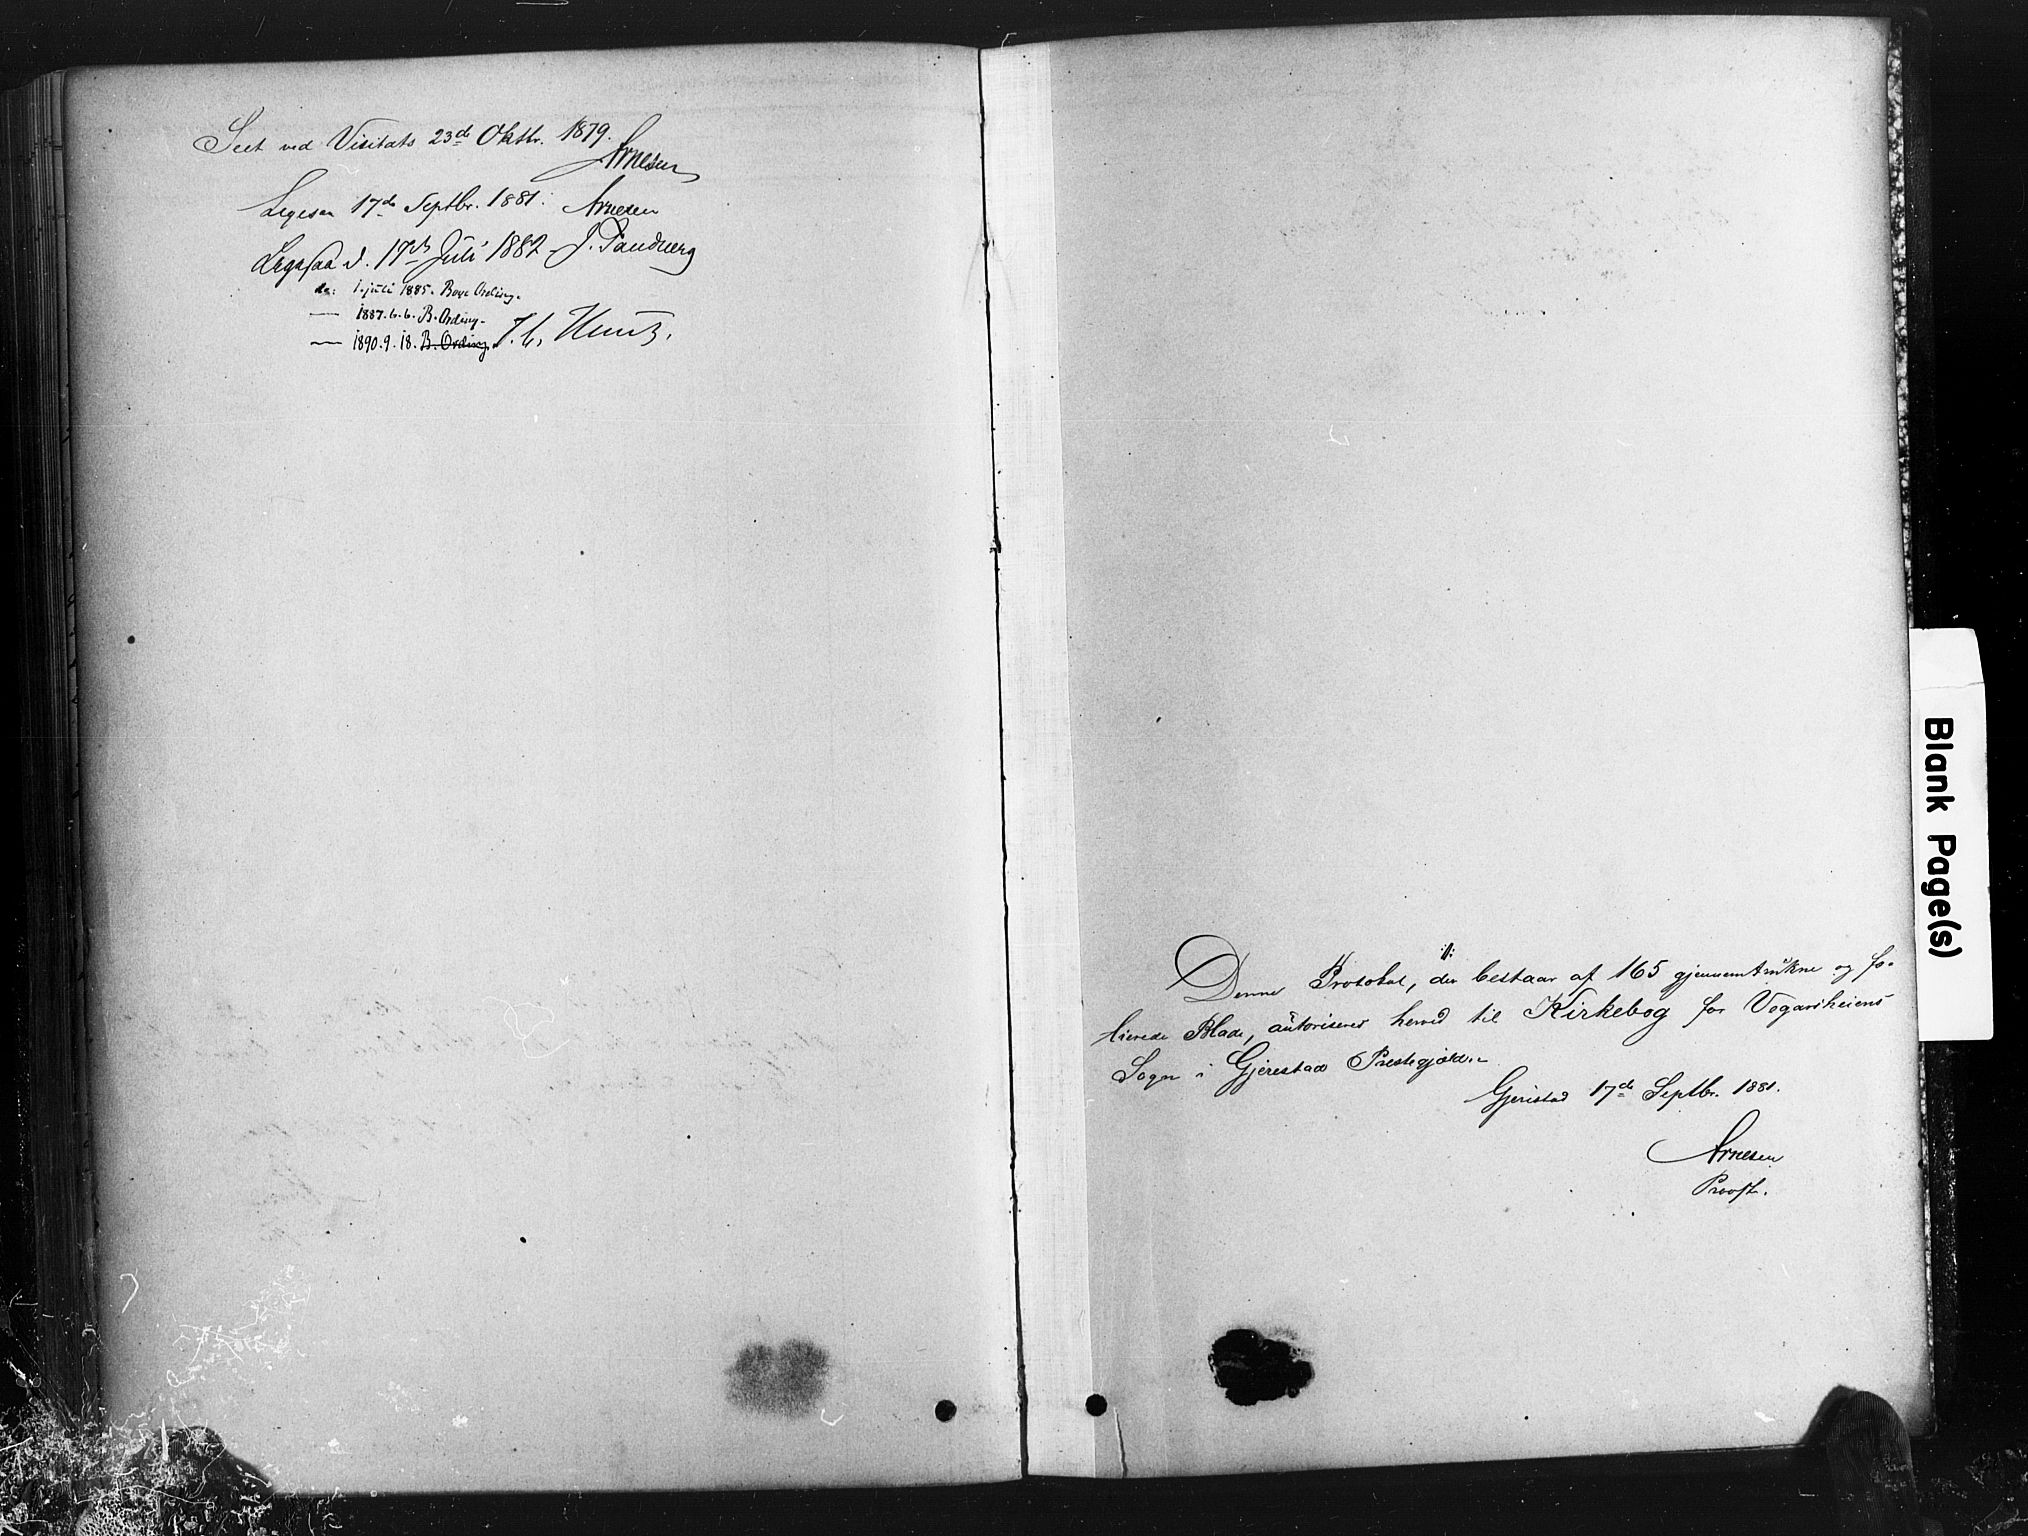 Seet ved Visitats 23de Oktbr. 1879.
Arnesen
Ligesaa 17de Septbr. 1881. Arnesen
Ligesaa d. 17de Juli 1882 J. Sandberg
do: 1. juli 1885. Boye Ording.
— 1887.6.6. B. Ording.
— 1890.9.18. B. Ording.
Denne Protokol, der bestaar af 165 gjennemtrukne og fo-
lierede Blade, autoriseres herved til Kirkebog for Vegarsheiens
Sogn i Gjerestad Prestegjæld.
Gjerestad 17de Septbr. 1881.
Arnesen
Provst.
Blank Page(s)